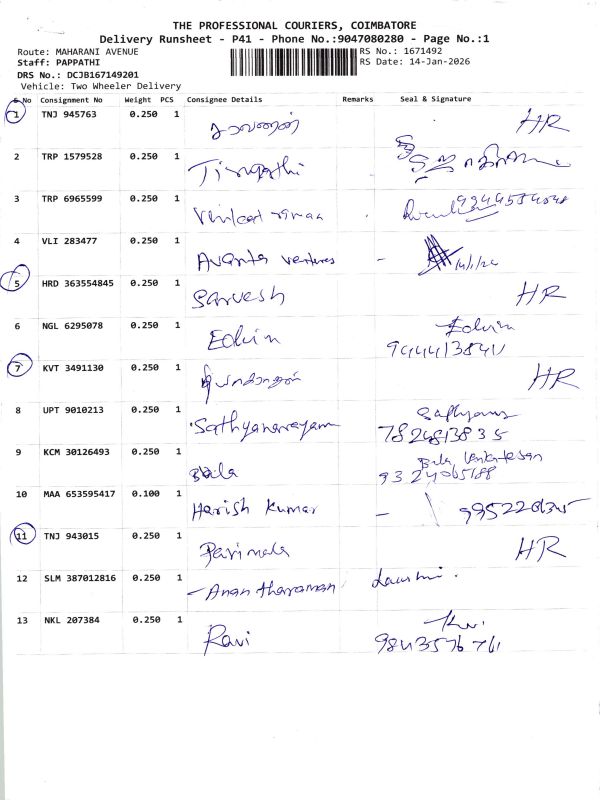 THE PROFESSIONAL COURIERS, COIMBATORE
Delivery Runsheet - P41 - Phone No.:9047080280 - Page No.:1
Route: MAHARANI AVENUE RS No.: 1671492
Staff: PAPPATHI RS Date: 14-Jan-2026
DRS No.: DCJB167149201
Vehicle: Two Wheeler Delivery
S No Consignment No Weight PCS Consignee Details Remarks Seal & Signature
1 TNJ 945763 0.250 1 சரவணன் HR
2 TRP 1579528 0.250 1 Tirupathi
3 TRP 6965599 0.250 1
4 VLI 283477 0.250 1 Avanta ventures - 14/1/26
5 HRD 363554845 0.250 1 Sarvesh HR
6 NGL 6295078 0.250 1 Edwin Edwin
9444138411
7 KVT 3491130 0.250 1 HR
8 UPT 9010213 0.250 1 Sathyanarayanan
7824813835
9 KCM 30126493 0.250 1 Bala Bala Venkatesan
9324065188
10 MAA 653595417 0.100 1 Harish Kumar - 9952201345
11 TNJ 943015 0.250 1 Parimala HR
12 SLM 387012816 0.250 1 -Anantharaman Laxshmi.
13 NKL 207384 0.250 1 Ravi
9843576761